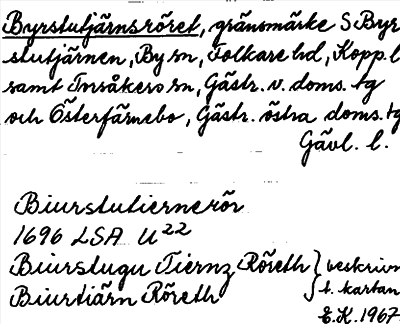 Byrstutjärnsröret, gränsmärke S Byr
stutjärnen, By sn, Folkare hd, Kopp. l
samt Torsåkers sn, Gästr. v. doms. tg
och Österfärnebo, Gästr. östra doms. tg
Gävl. l.
Biurstutiernerör
1696 LSA U 22
Biurstugu Tiernz Röreth } beskrivn
Biurtiärn Röreth t. kartan
E.K. 1967